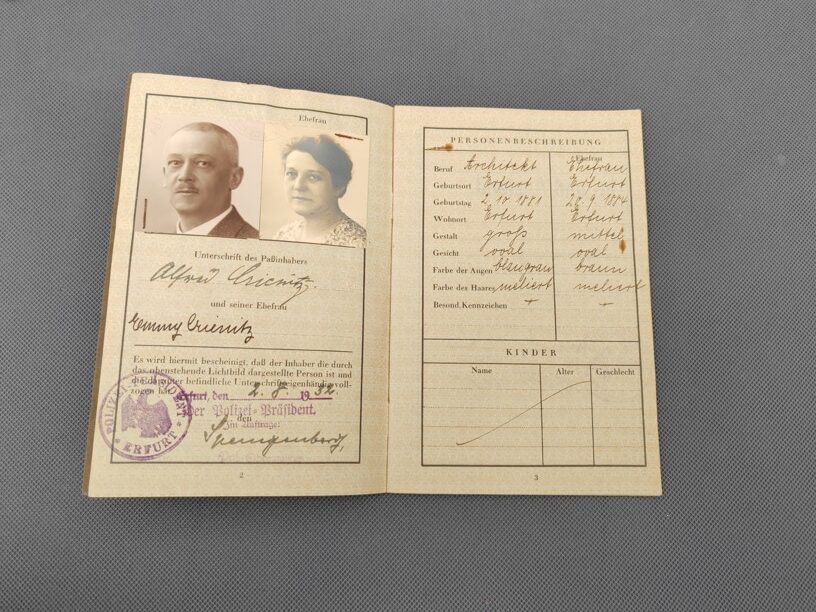 Ehefrau
Unterschrift des Paßinhabers
Alfred
und seiner Ehefrau
Emmy
Es wird hiermit bescheinigt, daß der Inhaber die durch
das obenstehende Lichtbild dargestellte Person ist und
die darunter befindliche Unterschrift eigenhändig voll-
zogen hat.
Erfurt, den 2. 8. 1932.
Der Polizei-Präsident.
den
Im Auftrage:
POLIZEI-PRÄSIDENT
* ERFURT *
2
PERSONENBESCHREIBUNG
Ehefrau
Beruf Architekt Ehefrau
Geburtsort Erfurt Erfurt
Geburtstag 2.10 1881 20.9.1884
Wohnort Erfurt Erfurt
Gestalt groß mittel
Gesicht oval oval
Farbe der Augen blaugrau braun
Farbe des Haares meliert meliert
Besond. Kennzeichen - -
KINDER
Name Alter Geschlecht
3